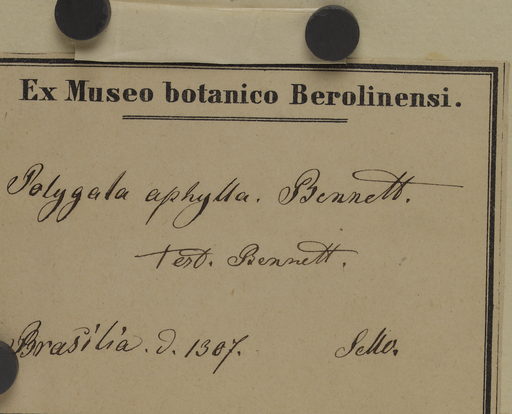 Ex Museo botanico Berolinensi.
Polygala aphylla. Bennett.
test. Bennett.
Brasilia. d. 1307. Sello.